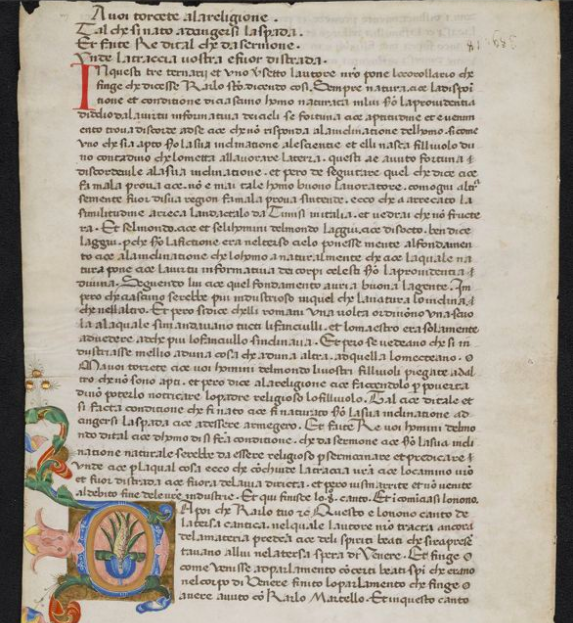 A voi torcete ala religione.
Tal che si nato adcingersi la spada.
Et fate Re di tal che da sermone.
Unde la traccia vostra e fuor di strada.
In questi tre ternarii et uno Vsetto lautore nro pone lo corollario che
finge che dicesse Karlo sto dicendo cosi. Sempre natura. cioe la dispoi
tione et conditione di ciascuno homo naturata in lui sco la providentia
di dio dala virtu informativa dei cieli se fortuna cioe aptitudine et evenim
ento trova discorde ad se cioe che no risponda ala inclinatione del homo. si come
uno che sia apto sco la sua inclinatione ale scientie et elli nasca filliuolo du
no contadino che lo metta a llavorare la terra. questi ae avuto fortuna
discordeule ala sua inclinatione. et pero de seguitare quel che dice cioe
fa mala prova cioe. no e mai tale homo buono lavoratore. como gni altra
semente fuor di sua region fa mala prova
similitudine arieca tunisi in italia. et vedrai che no fructe
ra. Et sel mondo. cioe et se li homini del mondo laggiu. cioe di socto. ben dice
laggiu. pche sco la fictione era nel terso cielo ponesse mente al fondamen
to cioe ala inclinatione che lo homo a naturalmente che cioe la quale na
tura pone cioe la virtu informativa dei corpi celesti sco la providentia
divina. Seguendo lui cioe quel fondamento auria buona la gente. Im
pero che ciascuno serebbe piu industrioso in quel che la natura lo inclina
che nell altro. Et pero si dice che li romani una volta ordinono una scuo
la ala quale si mandavano tucti li fanciulli. et lo maestro era solamente
ad vedere ad che piu lo fanciullo sinclinava. Et pero se vedeano che si in
dustriasse mellio ad una cosa che ad una altra. ad quella lo mecteano.
Ma voi torcete cioe voi homini del mondo li vostri filliuoli piegate ad al
tro che no sono apti. et pero dice ala religione cioe faccendolo p poverta
di no poterlo notricare lo patre religioso lo filliuolo. Tal cioe di tale et
si facta conditione che fi nato cioe fi naturato sco la sua inclinatione ad
cingersi la spada cioe ad essere armegero. Et fate Re voi homini del mo
ndo di tal cioe dhomo di si fca conditione. che da sermone cioe sco la sua incli
natione naturale serebbe da essere religioso p sermonare et predicare
Unde cioe p la qual cosa ecco che conchiude la traccia vra cioe lo camino vro
et fuor di strada cioe fuora dela via diricta. et pero vi smarrite et no venite
al debito fine dele vre industrie. Et qui finisce lo .8. canto. Et comicasi lo nono.
Da poi che Karlo tuo &c Questo e lo nono canto de
la tersa cantica. nel quale lautore nro tracta ancora
dela materia predca cioe deli spiriti beati che si rapre
tavano allui nela tersa spera di Venere. Et finge
come venisse ad parlamento co certi beati spi che erano
nel corpo di Venere finito lo parlamento che finge
avere avuto co Karlo Martello. Et in questo canto